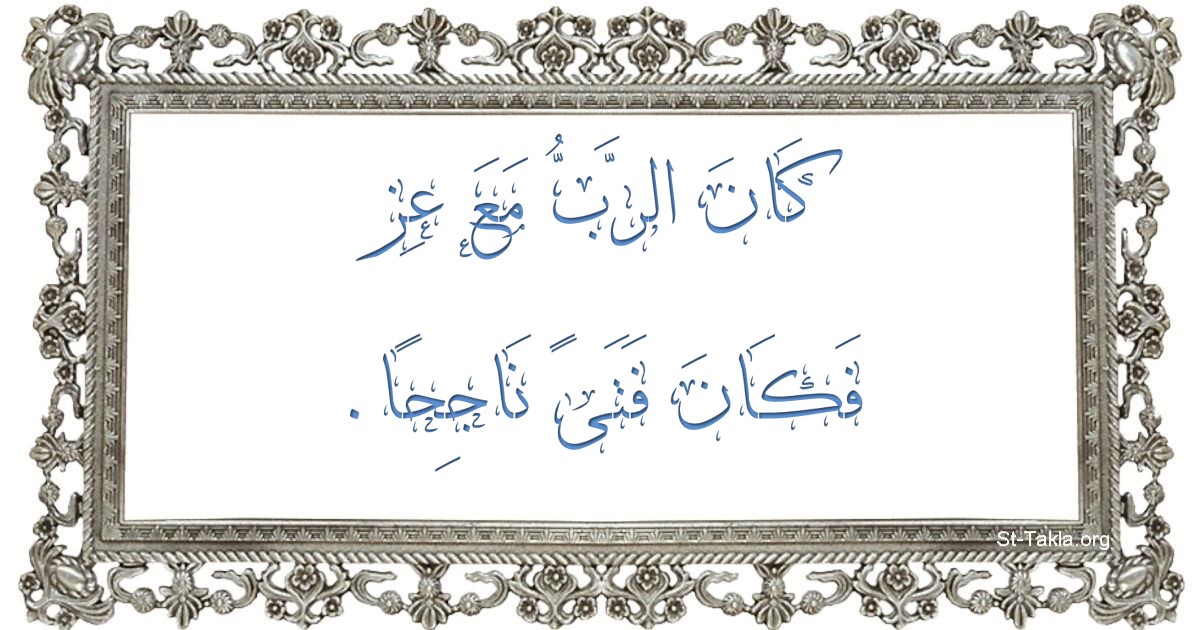 كَانَ الرَّبُّ مَعَ عِزِ
فَكَانَ فَتَىً نَاجِحًا .
St-Takla.org